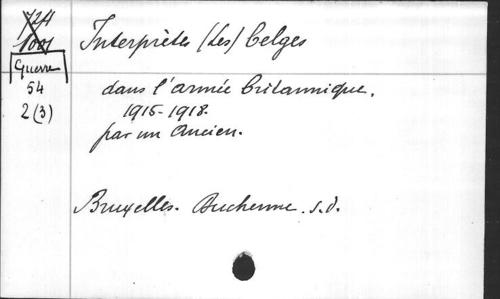 Interprètes (Les) belges
Guerre
54
2(3)
dans l'armée britannique.
1915-1918.
par un Ancien.
Bruxelles. Duchenne. s.d.